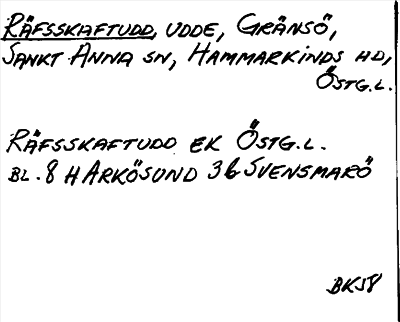 RÄFSSKAFTUDD, UDDE, GRÄNSÖ,
SANKT ANNA SN, HAMMARKINDS HD,
ÖSTG.L.
RÄFSSKAFTUDD EK ÖSTG.L.
BL. 8 H ARKÖSUND 3b SVENSMARÖ
BKJ8